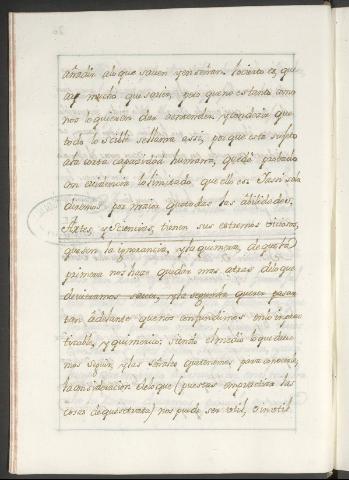 añadir alo que saven yenseñan. Lo cierto es, que
ay mucho que saver, pero que no es tanto como
nos lo quieren dar aentender, y
todo lo se llama assi, porque esta sujeto
ala corta capacidad humana, queda probado
con evidencia lo limitado, que ello es. Y assi solo
diremos por maior que todas las abilidades,
Artes, y Sciencias, tienen sus extremos viciosos,
que son la ignorancia, y la quimera, de que la
primera nos haze quedar mas atras de lo que
devieramos saver, y la segunda querer pasar
tan adelante que nos confundimos en lo
y quimerico: siendo el medio lo que deve-
mos seguir, y las señales que tenemos para conocerle,
la consideracion de lo que (puestas en practica las
cosas de que se trata) nos puede ser util, o inutil